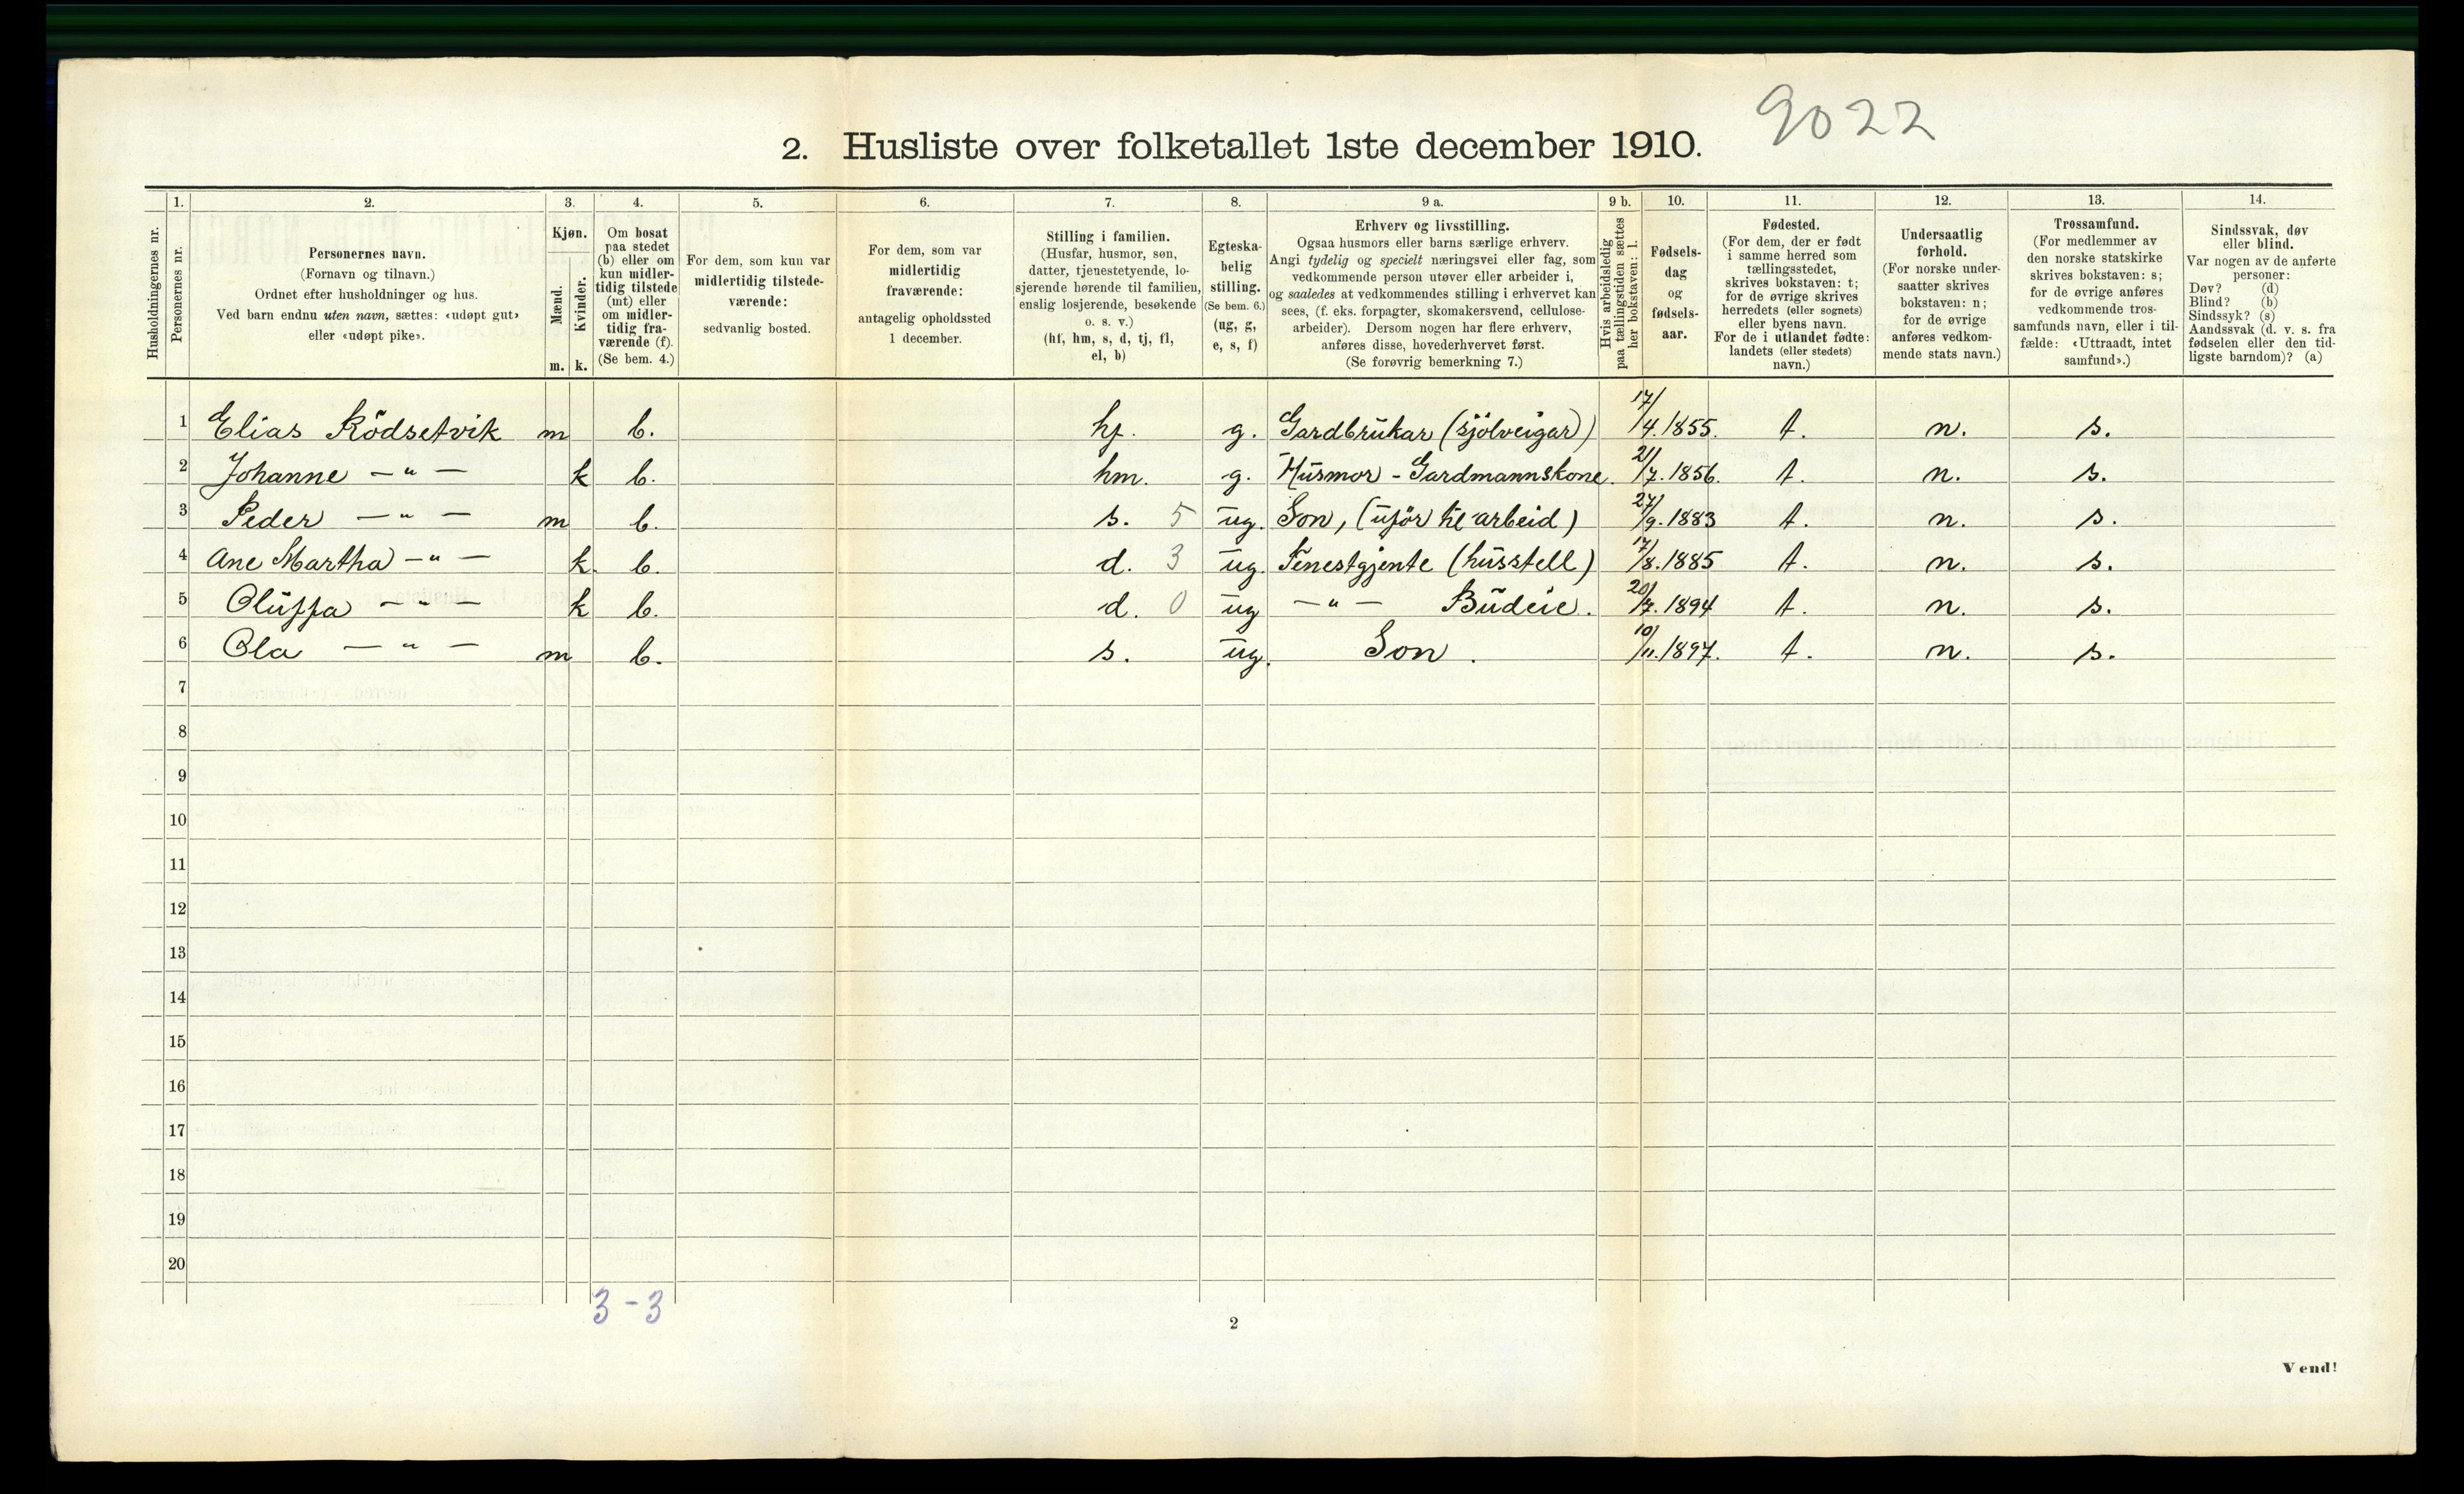 9022
2. Husliste over folketallet 1ste december 1910.
1. 2. 3. 4. 5. 6. 7. 8. 9 a. 9 b. 10. 11. 12. 13. 14.
Husholdningernes nr.
Personernes nr.
Personernes navn.
(Fornavn og tilnavn.)
Ordnet efter husholdninger og hus.
Ved barn endnu uten navn, sættes: «udøpt gut»
eller «udøpt pike».
Kjøn.
Mænd.
Kvinder.
m. k.
Om bosat
paa stedet
(b) eller om
kun midler-
tidig tilstede
(mt) eller
om midler-
tidig fra-
værende (f).
(Se bem. 4.)
For dem, som kun var
midlertidig tilstede-
værende:
sedvanlig bosted.
For dem, som var
midlertidig
fraværende:
antagelig opholdssted
1 december.
Stilling i familien.
(Husfar, husmor, søn,
datter, tjenestetyende, lo-
sjerende hørende til familien,
enslig losjerende, besøkende
o. s. v.)
(hf, hm, s, d, tj, fl,
el, b)
Egteska-
belig
stilling.
(Se bem. 6.)
(ug, g,
e, s, f)
Erhverv og livsstilling.
Ogsaa husmors eller barns særlige erhverv.
Angi tydelig og specielt næringsvei eller fag, som
vedkommende person utøver eller arbeider i,
og saaledes at vedkommendes stilling i erhvervet kan
sees, (f. eks. forpagter, skomakersvend, cellulose-
arbeider). Dersom nogen har flere erhverv,
anføres disse, hovederhvervet først.
(Se forøvrig bemerkning 7.)
Hvis arbeidsledig
paa tællingstiden sættes
her bokstaven: l.
Fødsels-
dag
og
fødsels-
aar.
Fødested.
(For dem, der er født
i samme herred som
tællingsstedet,
skrives bokstaven: t;
for de øvrige skrives
herredets (eller sognets)
eller byens navn.
For de i utlandet fødte:
landets (eller stedets)
navn.)
Undersaatlig
forhold.
(For norske under-
saatter skrives
bokstaven: n;
for de øvrige
anføres vedkom-
mende stats navn.)
Trossamfund.
(For medlemmer av
den norske statskirke
skrives bokstaven: s;
for de øvrige anføres
vedkommende tros-
samfunds navn, eller i til-
fælde: «Uttraadt, intet
samfund».)
Sindssvak, døv
eller blind.
Var nogen av de anførte
personer:
Døv? (d)
Blind? (b)
Sindssyk? (s)
Aandssvak (d. v. s. fra
fødselen eller den tid-
ligste barndom)? (a)
1 Elias Rödsetvik m b. hf. g. Gardbrukar (sjölveigar) 17/4. 1855. t. n. s.
2 Johanne — " — k b. hm. g. Husmor - Gardmannskone. 21/7. 1856. t. n. s.
3 Peder — " — m b. s. 5 ug. Son, (uför til arbeid) 27/9. 1883 t. n. s.
4 Ane Martha — " — k. b. d. 3 ug. Tenestgjente (husstell) 17/8. 1885 t. n. s.
5 Oluffa — " — k b. d. 0 ug — " — Budeie. 20/7. 1894 t. n. s.
6 Ola — " — m b. s. ug. Son. 10/11. 1897. t. n. s.
7
8
9
10
11
12
13
14
15
16
17
18
19
20
3 - 3
2
Vend!